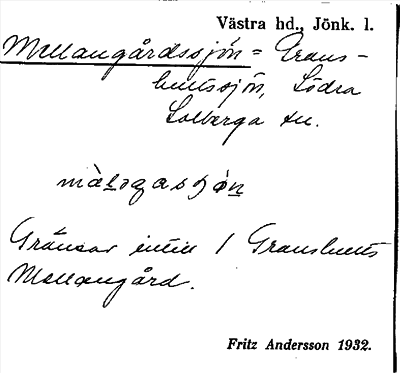 Västra hd., Jönk. l.
Mellangårdssjön = Grans-
hultssjön, Södra
Solberga sn.
Gränsar intill / Granshults
Mellangård.
Fritz Andersson 1932.